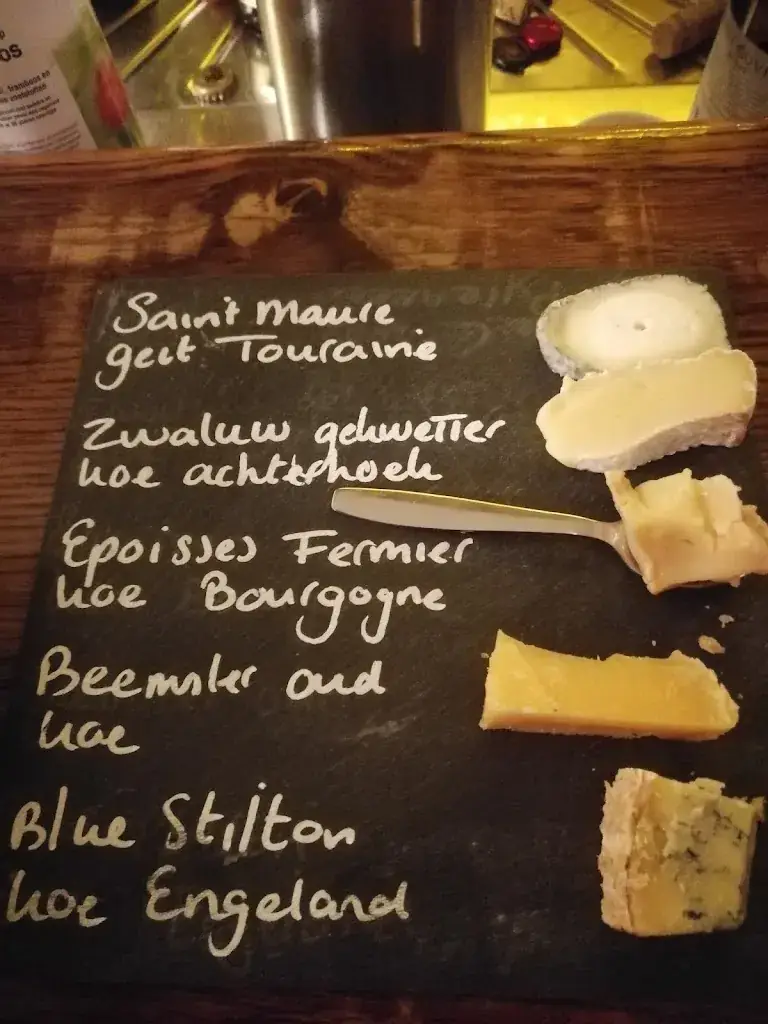 OS
Saint Maure
geit Touraine
Zwaluw gekwetter
koe achterhoek
Epoisses Fermier
koe Bourgogne
Beemster oud
koe
Blue Stilton
koe Engeland